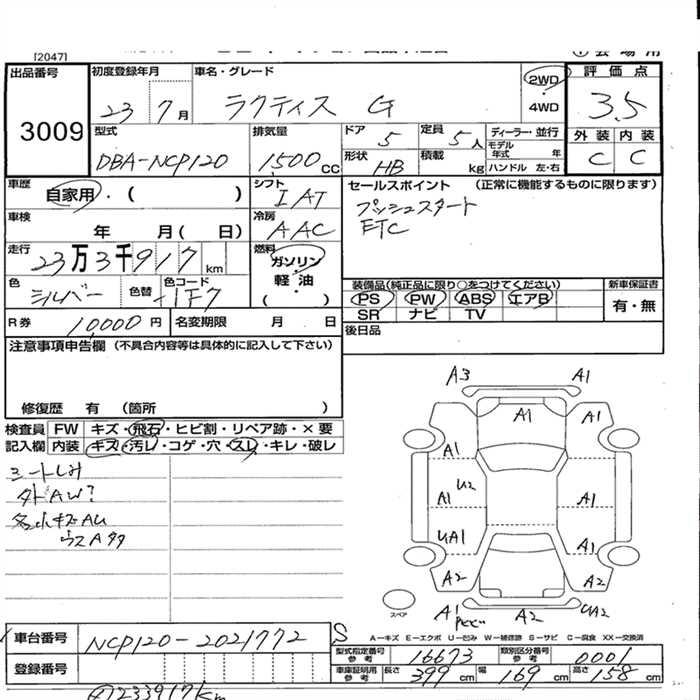 [2047]
出品番号 初度登録年月 車名・グレード 2WD 評価点
3009 23 7月 ラクティス G 4WD 3.5
型式 排気量 ドア 定員 ディーラー・並行 外装 内装
DBA-NCP120 1,500cc 5 5人 モデル年式 年 C C
形状 HB 積載 kg ハンドル 左・右
車歴 自家用・( ) シフト IAT セールスポイント (正常に機能するものに限ります)
車検 年 月( 日) 冷房 AAC プッシュスタート
ETC
走行 23万3千917km 燃料 ガソリン・軽・油 ( )
色 シルバー 色替 色コード 1F7
装備品(純正品に限り○をつけてください) 新車保証書
PS PW ABS エアB 有・無
SR ナビ TV
R券 10,000円 名変期限 月 日 後日品
注意事項申告欄 (不具合内容等は具体的に記入して下さい)
修復歴 有 (箇所 )
検査員 FW キズ・飛石・ヒビ割・リペア跡・×要
記入欄 内装 キズ・汚レ・コゲ・穴・スレ・キレ・破レ
シートしみ
外AW?
名小キズAU
ウスAタタ
A3 A1
A1
A1 A1
U2
A1 A1
UA1 A1
A2 A2
A1 A2 UA2
スペア
S
A-キズ E-エクボ U-凹み W-補修跡 S-サビ C-腐食 XX-交換済
車台番号 NCP120-2021772
型式指定番号 参考 16673 類別区分番号 参考 0001
登録番号
車庫証明用 参考 長さ 399cm 幅 169cm 高さ 158cm
233917km